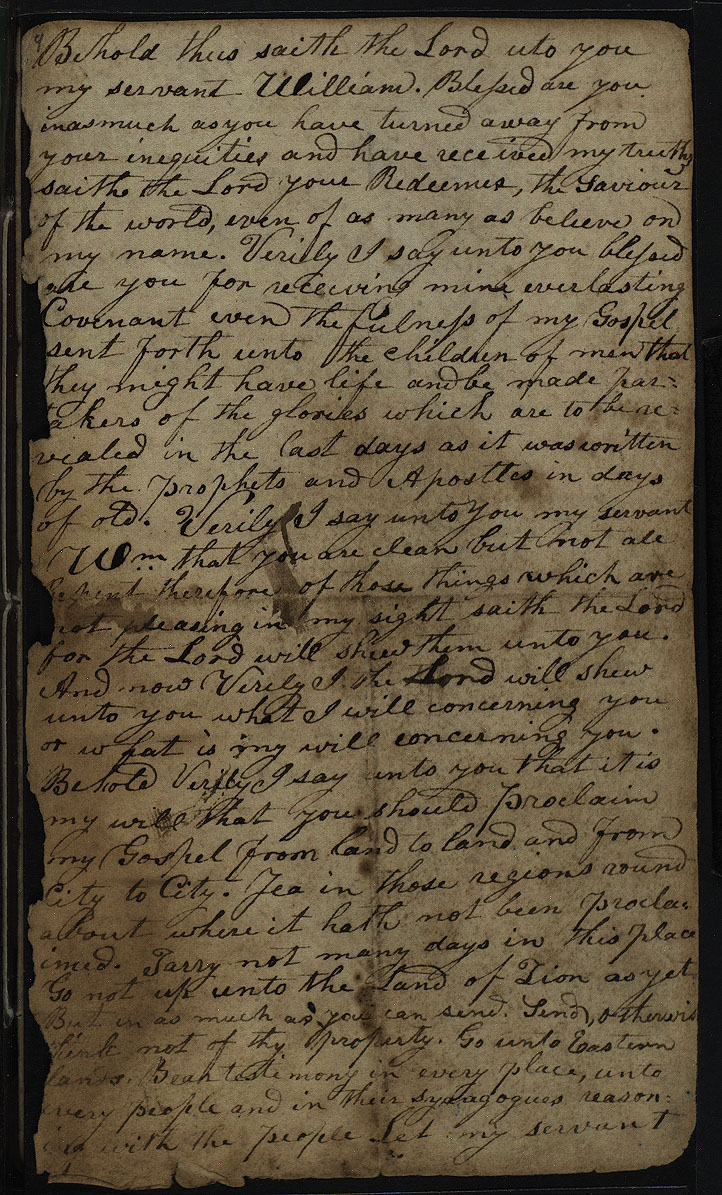 Behold thus saith the Lord uto you
my servant William. Blessed are you
inasmuch as you have turned away from
your inequities and have received my truths
saith the Lord your Redeemer, the Saviour
of the world, even of as many as believe on
my name. Verily I say unto you blessed
are you for receiving mine everlasting
Covenant even the fulness of my Gospel
sent forth unto the children of men that
they might have life and be made par=
takers of the glories which are to be re=
vealed in the last days as it was written
by the Prophets and Apostles in days
of old. Verily I say unto you my servant
Wm that you are clean but not all
Repent therefore of those things which are
not pleasing in my sight saith the Lord
for the Lord will shew them unto you.
And now Verily I the Lord will shew
unto you what I will concerning you
or what is my will concerning you.
Behold Verily I say unto you that it is
my will that you should proclaim
my Gospel from land to land and from
City to City. Yea in those regions round
about where it hath not been procla=
imed. Tarry not many days in this place
Go not up unto the Land of Zion as yet
But in as much as you can send. Send, otherwis
think not of thy property. Go unto Eastern
lands. Bear testimony in every place, unto
every people and in their synagogues reason=
ing with the people Let my servant